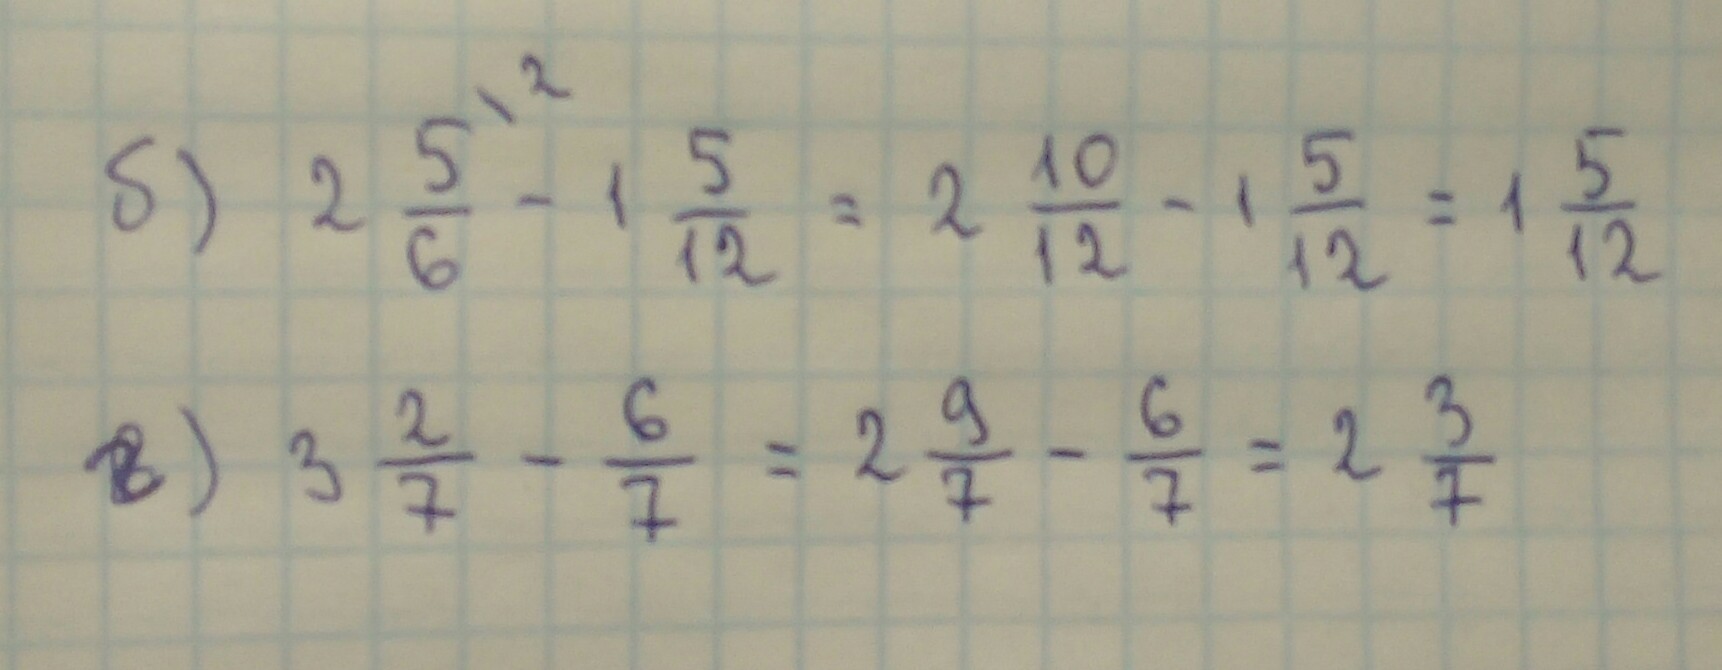 б) 2 5/6 \2 - 1 5/12 = 2 10/12 - 1 5/12 = 1 5/12
в) 3 2/7 - 6/7 = 2 9/7 - 6/7 = 2 3/7